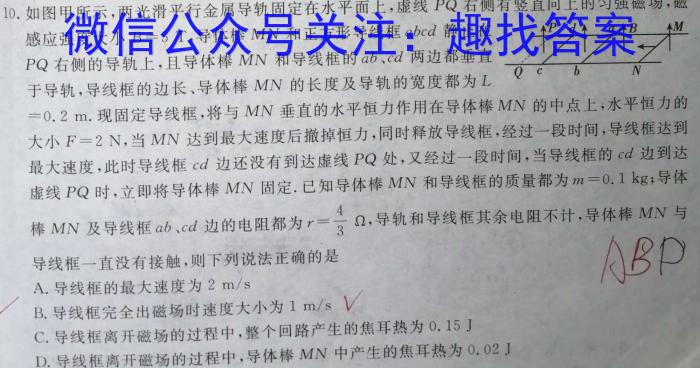 10. 如图甲所示，两光滑平行金属导轨固定在水平面上，虚线 PQ 右侧有竖直向上的匀强磁场，磁
微信公众号关注：趣找答案
感应强
PQ 右侧的导轨上，且导体棒 MN 和导线框的 ab、cd 两边都垂直
于导轨，导线框的边长、导体棒 MN 的长度及导轨的宽度都为 L
=0.2 m. 现固定导线框，将与 MN 垂直的水平恒力作用在导体棒 MN 的中点上，水平恒力的
大小 F=2 N，当 MN 达到最大速度后撤掉恒力，同时释放导线框，经过一段时间，导线框达到
最大速度，此时导线框 cd 边还没有到达虚线 PQ 处，又经过一段时间，当导线框的 cd 边到达
虚线 PQ 时，立即将导体棒 MN 固定. 已知导体棒 MN 和导线框的质量都为 m=0.1 kg；导体
棒 MN 及导线框 ab、cd 边的电阻都为 r=4/3 Ω，导轨和导线框其余电阻不计，导体棒 MN 与
导线框一直没有接触，则下列说法正确的是
A. 导线框的最大速度为 2 m/s
B. 导线框完全出磁场时速度大小为 1 m/s
C. 导线框离开磁场的过程中，整个回路产生的焦耳热为 0.15 J
D. 导线框离开磁场的过程中，导体棒 MN 中产生的焦耳热为 0.02 J
P
B
M
Q c b N
ABD